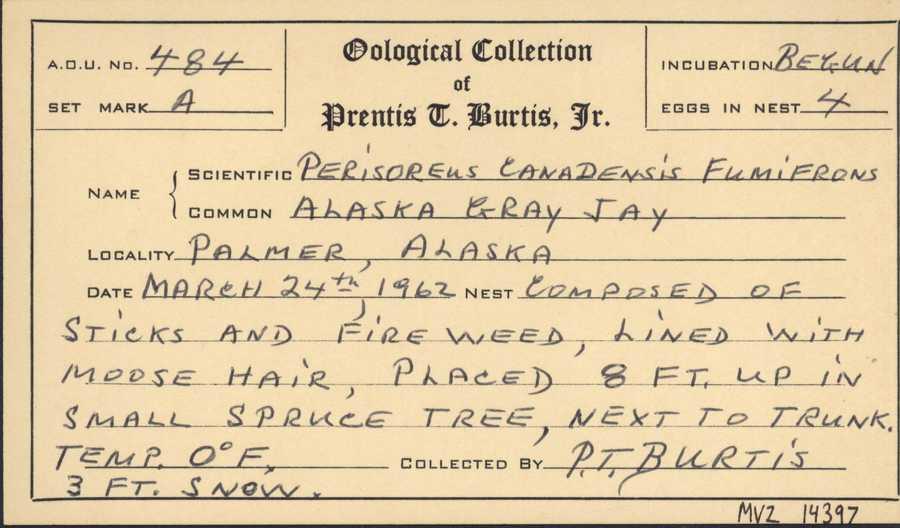 A.O.U. No. 484
SET MARK A
Oological Collection
of
Prentis T. Burtis, Jr.
INCUBATION BEGUN
EGGS IN NEST 4
NAME
SCIENTIFIC PERISOREUS CANADENSIS FUMIFRONS
COMMON ALASKA GRAY JAY
LOCALITY PALMER, ALASKA
DATE MARCH 24th, 1962 NEST COMPOSED OF
STICKS AND FIREWEED, LINED WITH
MOOSE HAIR, PLACED 8 FT. UP IN
SMALL SPRUCE TREE, NEXT TO TRUNK.
TEMP. 0°F. COLLECTED BY P.T. BURTIS
3 FT. SNOW.
MVZ 14397